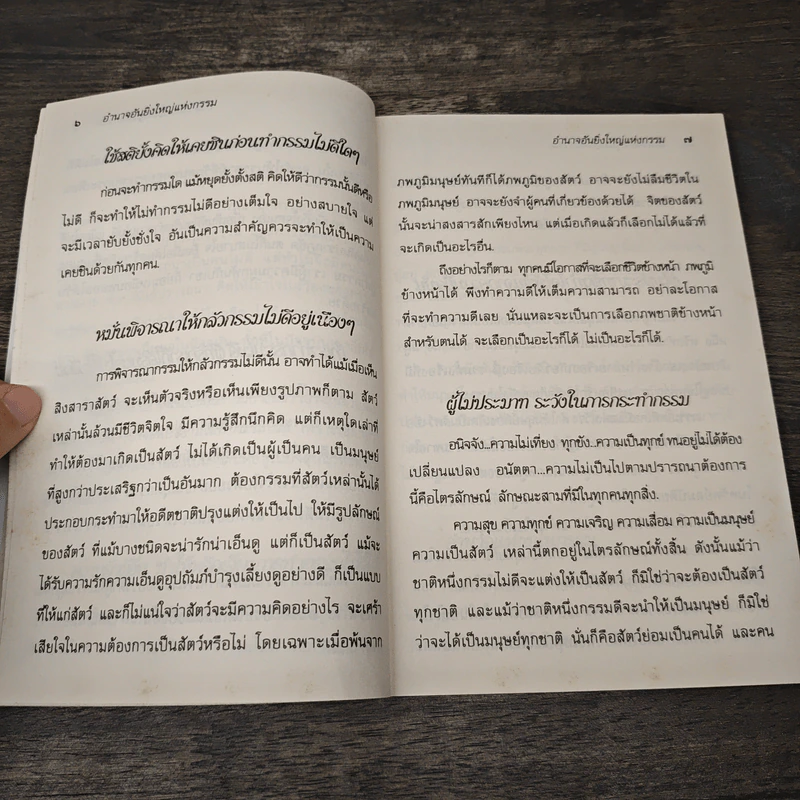 ๖ อำนาจอันยิ่งใหญ่แห่งกรรม
ใช้สติยั้งคิดให้เคยชินก่อนทำกรรมไม่ดีใดๆ
ก่อนจะทำกรรมใด แม้หยุดยั้งตั้งสติ คิดให้ดีว่ากรรมนั้นดีหรือ
ไม่ดี ก็จะทำให้ไม่ทำกรรมไม่ดีอย่างเต็มใจ อย่างสบายใจ แต่
จะมีเวลายับยั้งชั่งใจ อันเป็นความสำคัญควรจะทำให้เป็นความ
เคยชินด้วยกันทุกคน.
หมั่นพิจารณาให้กลัวกรรมไม่ดีอยู่เนืองๆ
การพิจารณากรรมให้กลัวกรรมไม่ดีนั้น อาจทำได้แม้เมื่อเห็น
สิงสาราสัตว์ จะเห็นตัวจริงหรือเห็นเพียงรูปภาพก็ตาม สัตว์
เหล่านั้นล้วนมีชีวิตจิตใจ มีความรู้สึกนึกคิด แต่ก็เหตุใดเล่าที่
ทำให้ต้องมาเกิดเป็นสัตว์ ไม่ได้เกิดเป็นผู้เป็นคน เป็นมนุษย์
ที่สูงกว่าประเสริฐกว่าเป็นอันมาก ต้องกรรมที่สัตว์เหล่านั้นได้
ประกอบกระทำมาให้อดีตชาติปรุงแต่งให้เป็นไป ให้มีรูปลักษณ์
ของสัตว์ ที่แม้บางชนิดจะน่ารักน่าเอ็นดู แต่ก็เป็นสัตว์ แม้จะ
ได้รับความรักความเอ็นดูอุปถัมภ์บำรุงเลี้ยงดูอย่างดี ก็เป็นแบบ
ที่ให้แก่สัตว์ และก็ไม่แน่ใจว่าสัตว์จะมีความคิดอย่างไร จะเศร้า
เสียใจในความต้องการเป็นสัตว์หรือไม่ โดยเฉพาะเมื่อพ้นจาก
อำนาจอันยิ่งใหญ่แห่งกรรม ๗
ภพภูมิมนุษย์ทันทีก็ได้ภพภูมิของสัตว์ อาจจะยังไม่ลืมชีวิตใน
ภพภูมิมนุษย์ อาจจะยังจำผู้คนที่เกี่ยวข้องด้วยได้ จิตของสัตว์
นั้นจะน่าสงสารสักเพียงไหน แต่เมื่อเกิดแล้วก็เลือกไม่ได้แล้วที่
จะเกิดเป็นอะไรอื่น.
ถึงอย่างไรก็ตาม ทุกคนมีโอกาสที่จะเลือกชีวิตข้างหน้า ภพภูมิ
ข้างหน้าได้ พึงทำความดีให้เต็มความสามารถ อย่าละโอกาส
ที่จะทำความดีเลย นั่นแหละจะเป็นการเลือกภพชาติข้างหน้า
สำหรับตนได้ จะเลือกเป็นอะไรก็ได้ ไม่เป็นอะไรก็ได้.
ผู้ไม่ประมาท ระวังในการกระทำกรรม
อนิจจัง...ความไม่เที่ยง ทุกขัง..ความเป็นทุกข์ ทนอยู่ไม่ได้ต้อง
เปลี่ยนแปลง อนัตตา...ความไม่เป็นไปตามปรารถนาต้องการ
นี้คือไตรลักษณ์ ลักษณะสามที่มีในทุกคนทุกสิ่ง.
ความสุข ความทุกข์ ความเจริญ ความเสื่อม ความเป็นมนุษย์
ความเป็นสัตว์ เหล่านี้ตกอยู่ในไตรลักษณ์ทั้งสิ้น ดังนั้นแม้ว่า
ชาติหนึ่งกรรมไม่ดีจะแต่งให้เป็นสัตว์ ก็มิใช่ว่าจะต้องเป็นสัตว์
ทุกชาติ และแม้ว่าชาติหนึ่งกรรมดีจะนำให้เป็นมนุษย์ ก็มิใช่
ว่าจะได้เป็นมนุษย์ทุกชาติ นั่นก็คือสัตว์ย่อมเป็นคนได้ และคน